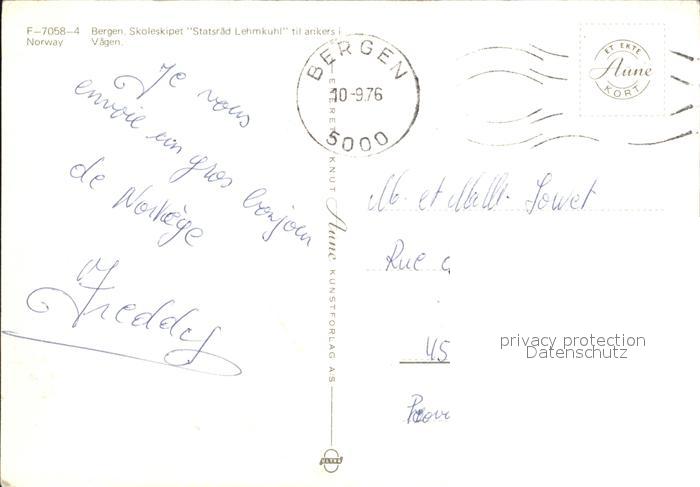 F-7058-4 Bergen. Skoleskipet "Statsråd Lehmkuhl" til ankers i
Norway Vågen.
Je vous
envoie un gros bonjour
de Norvège
Freddy
ENERET KNUT Aune KUNSTFORLAG A.S
BERGEN
10-9.76
5000
ET EKTE
Aune
KORT
M. et Mlle.
Rue
privacy protection
Datenschutz